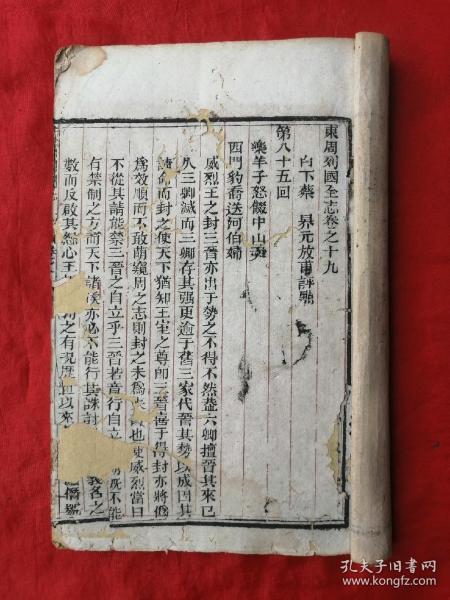 東周列國全志卷之十九
白下蔡 昇元放甫評點
第八十五回
樂羊子怒餟中山羹
西門豹喬送河伯婦
威烈王之封三晉亦出于勢之不得不然蓋六卿擅晉其來已
久三卿滅而三卿存其强更逾于舊三家代晉其勢以成因其
請命而封之使天下猶知王室之尊卽三晉喜于得封亦將僞
爲效順而不敢萌窺周之志則封之未爲 也使威烈當日
不從其請能禁三晉之自立乎三晉若竟行自立 旣不能
有禁制之方而天下諸侯亦必不能行其誅討 義名之
數而反啟其 心王 之有況歷 以來 僭
孔夫子旧书网
www.kongfz.com